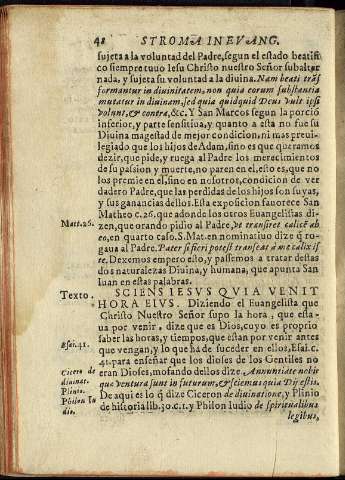 48 STROMA IN EVANG.
sujeta a la voluntad del Padre, segun el estado beatifi
co siempre tuuo Iesu Christo nuestro Señor subalter
nada, y sujeta su voluntad a la diuina. Nam beati trās
formantur in diuinitatem, non quia eorum substantia
mutatur in diuinam, sed quia quidquid Deus vult ipsi
volunt, & contra, &c. Y San Marcos segun la porciō
inferior, y parte sensitiua, y quanto a esta no fue su
Diuina magestad de mejor condicion, ni mas preui-
legiado que los hijos de Adam, sino es que queramos
dezir, que pide, y ruega al Padre los merecimientos
de su passion y muerte, no paren en el, esto es, que no
los premie en el, sino en nosotros, condicion de ver
dadero Padre, que las perdidas de los hijos son suyas,
y sus ganancias dellos. Esta exposicion fauorece San
Matheo c. 26. que adonde los otros Euangelistas di-
Matt. 26. zen, que orando pidio al Padre, vt transiret calicē ab
eo, en quarto caso, S. Mat. en nominatiuo dize q̄ ro-
gaua al Padre. Pater si fieri potest transeat à me calix is-
te. Dexemos empero esto, y passemos a tratar destas
dos naturalezas Diuina, y humana, que apunta San
Iuan en estas palabras.
Texto. SCIENS IESUS QVIA VENIT
HORA EIVS. Diziendo el Euangelista que
Christo Nuestro Señor supo la hora, que esta-
ua por venir, dize que es Dios, cuyo es proprio
saber las horas, y tiempos, que estan por venir antes
Esai. 41. que vengan, y lo que ha de suceder en ellos, Esai. c.
41. para enseñar que los dioses de los Gentiles no
Cicero de eran Dioses, mofando dellos dize. Annuntiate nobis
diuinat. que ventura sunt in futurum, & sciemus quia Dij estis.
Plinio. De aqui es lo q̄ dize Ciceron de diuinatione, y Plinio
Philon Iu de historia lib. 30. C. 1. y Philon Iudio de spiritualibus
dio. legibus,